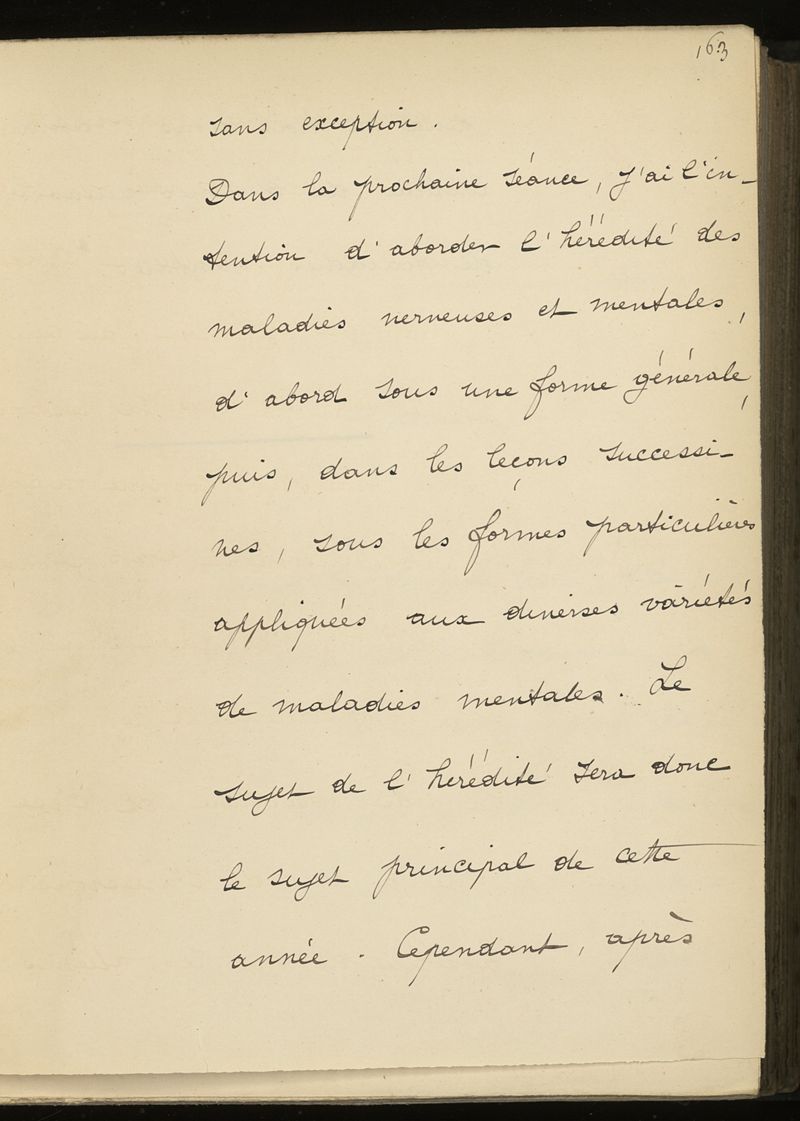 163
sans exception.
Dans la prochaine séance, j'ai l'in-
tention d'aborder l'hérédité des
maladies nerveuses et mentales,
d'abord sous une forme générale,
puis, dans les leçons successi-
ves, sous les formes particulières
appliquées aux diverses variétés
de maladies mentales. Le
sujet de l'hérédité sera donc
le sujet principal de cette
année. Cependant, après